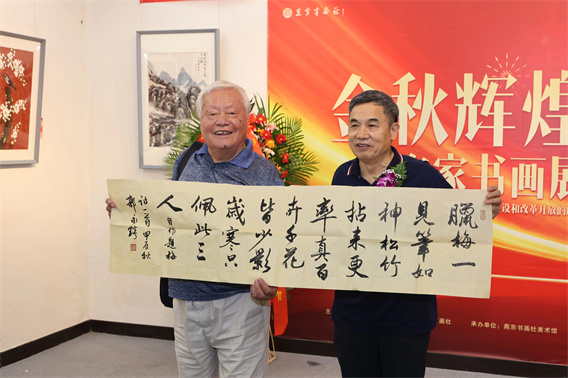 燕京书画社
金秋辉煌
家书画展
设和改革开放的
臘梅一
見筆如
神松竹
拈来更
率真百
卉千花
皆少影
歲寒只
佩此三
人 自作題梅
詩一首 甲辰秋
主
画社
承办单位：燕京书画社美术馆